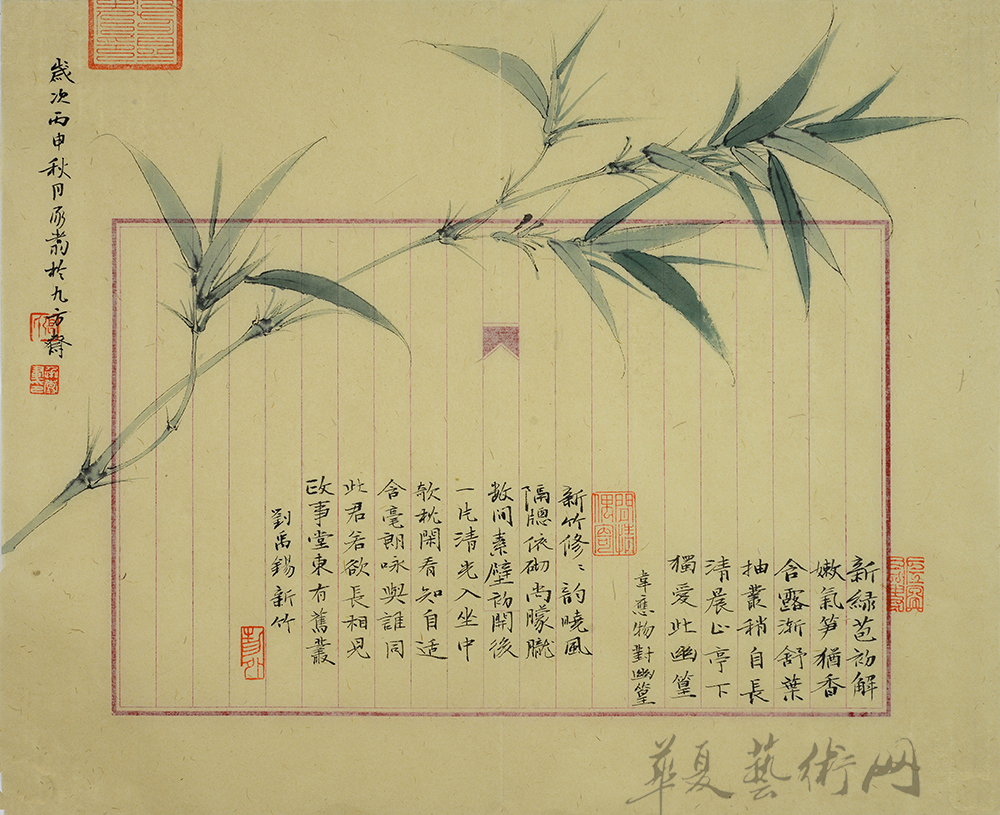 新緑苞初解
嫩氣笋猶香
含露漸舒葉
抽叢稍自長
清晨止亭下
獨愛此幽篁
韋應物對幽篁
新竹修〻韵曉風
隔牕依砌尚朦朧
数间素壁初開後
一片清光入坐中
欹枕閑看知自适
含毫朗咏與誰同
此君若欲長相見
政事堂東有舊叢
劉禹錫新竹
歲次丙申秋月於九方齋
華夏藝術网